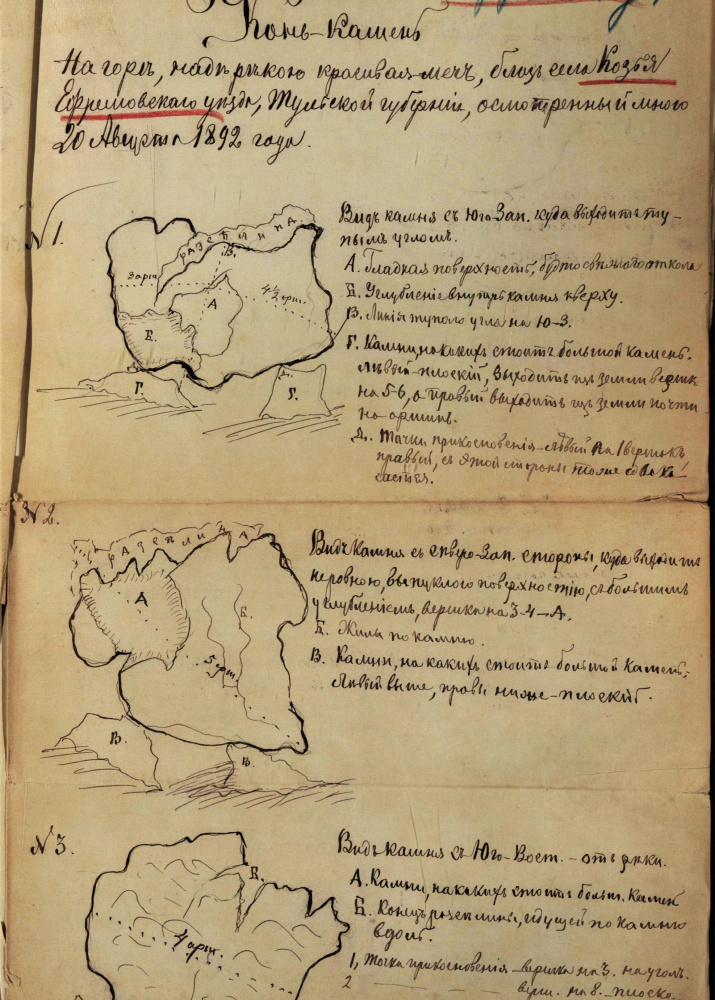 Конь-Камень
На горѣ, надъ рѣкою красивая-мечъ, близь села Козья
Ефремовскаго уѣзда, Тульской губерніи, осмотренный мною
20 Августа 1892 года.
№ 1.
Видъ камня съ Юго-Зап. куда выходитъ ту-
пымъ угломъ.
А. Гладкая поверхность, будто свѣжаго откола
Б. Углубленіе внутрь камня кверху.
В. Линія тупого угла на Ю-З.
Г. Камни, на какихъ стоитъ большой камень.
Лѣвый-плоскій, выходитъ изъ земли вершк.
на 5-6, а правый выходитъ изъ земли почти
на аршинъ.
Д. Точки прикосновенія-лѣвый на 1 вершокъ
правый, съ этой стороны тоже
РАЗСѢЛИНА
В.
3 арш.
А
4½ арш.
Б.
Г.
Д.
Г.
№ 2.
Видъ камня съ Сѣверо-Зап. стороны, куда выходитъ
неровною, выпуклою поверхностію, съ большимъ
углубленіемъ, вершка на 3-4-А.
Б. Жилы по камню.
В. Камни, на какихъ стоитъ большой камень.
Лѣвый выше, правый ниже-плоскій.
РАЗСѢЛИНА
А
Б.
5 арш.
В.
В.
№ 3.
Видъ камня съ Юго-Вост. - отъ рѣки.
А. Камни, на какихъ стоитъ больш. камень
Б. Конецъ разселины, идущей по камню
вдоль.
1, Точка прикосновенія вершка на 3. на уголъ.
2 верш. на 8. плоско.
Б.
4 арш.